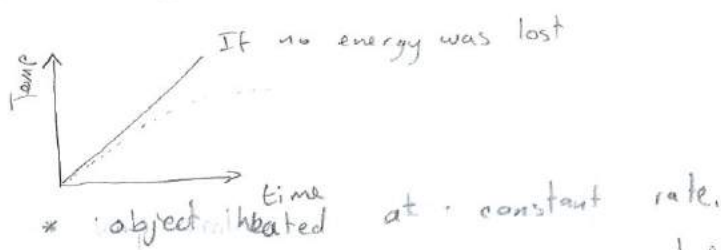 If no energy was lost
Temp
time
* object heated at constant rate.